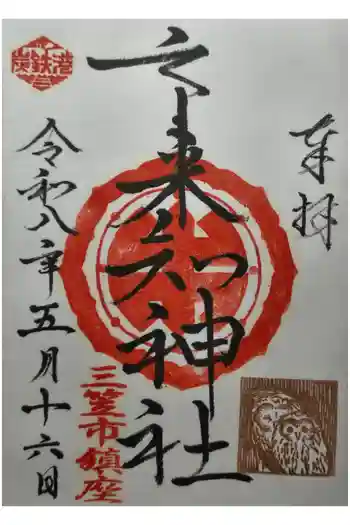 奉拝
市来知神社
三笠市鎮座
令和八年五月十六日
炭鉄港